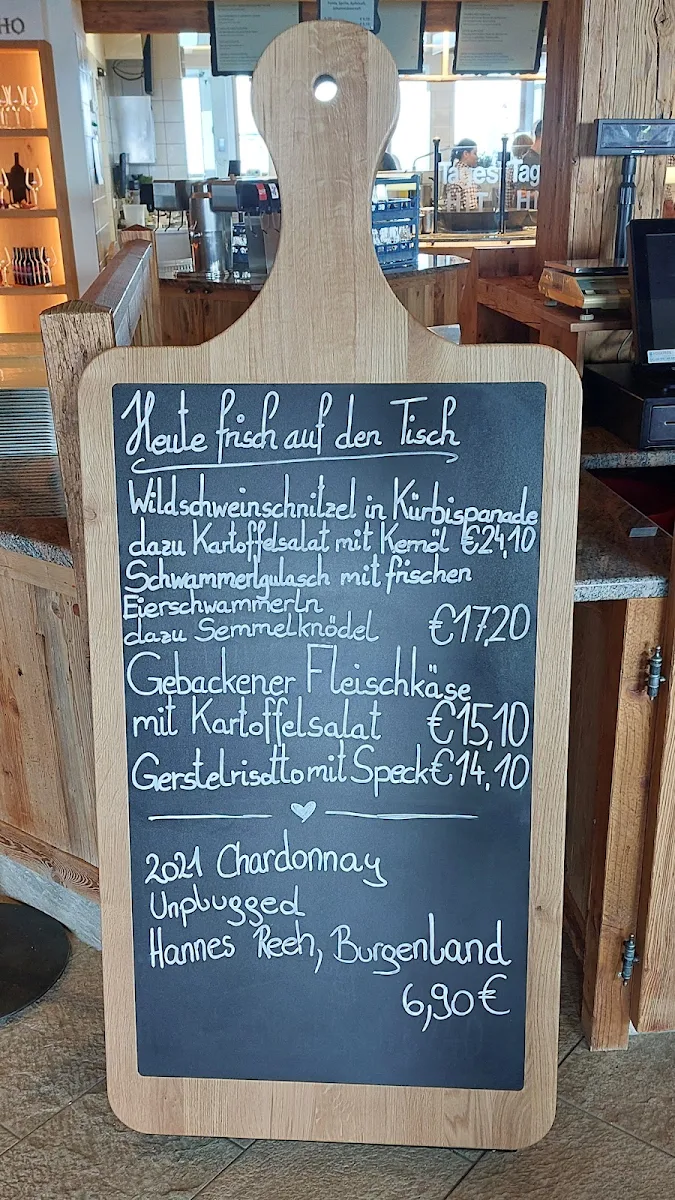 HO
Tages
Tag
Heute frisch auf den Tisch
Wildschweinschnitzel in Kürbispanade
dazu Kartoffelsalat mit Kernöl €24,10
Schwammerlgulasch mit frischen
Eierschwammerln
dazu Semmelknödel €17,20
Gebackener Fleischkäse
mit Kartoffelsalat €15,10
Gerstelrisotto mit Speck €14,10
2021 Chardonnay
Unplugged
Hannes Reeh, Burgenland
6,90€